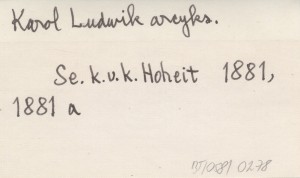 Karol Ludwik arcyks.
Se. k. u. k. Hoheit 1881,
1881 a